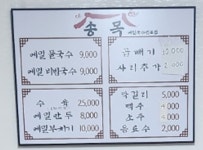 송목
메밀물국수 9,000
메밀비빔국수 9,000
곱빼기
사리추가
수육 25,000
메밀만두 8,000
메밀부치기 10,000
막걸리 5,000
맥주 4,000
소주 4,000
음료수 2,000